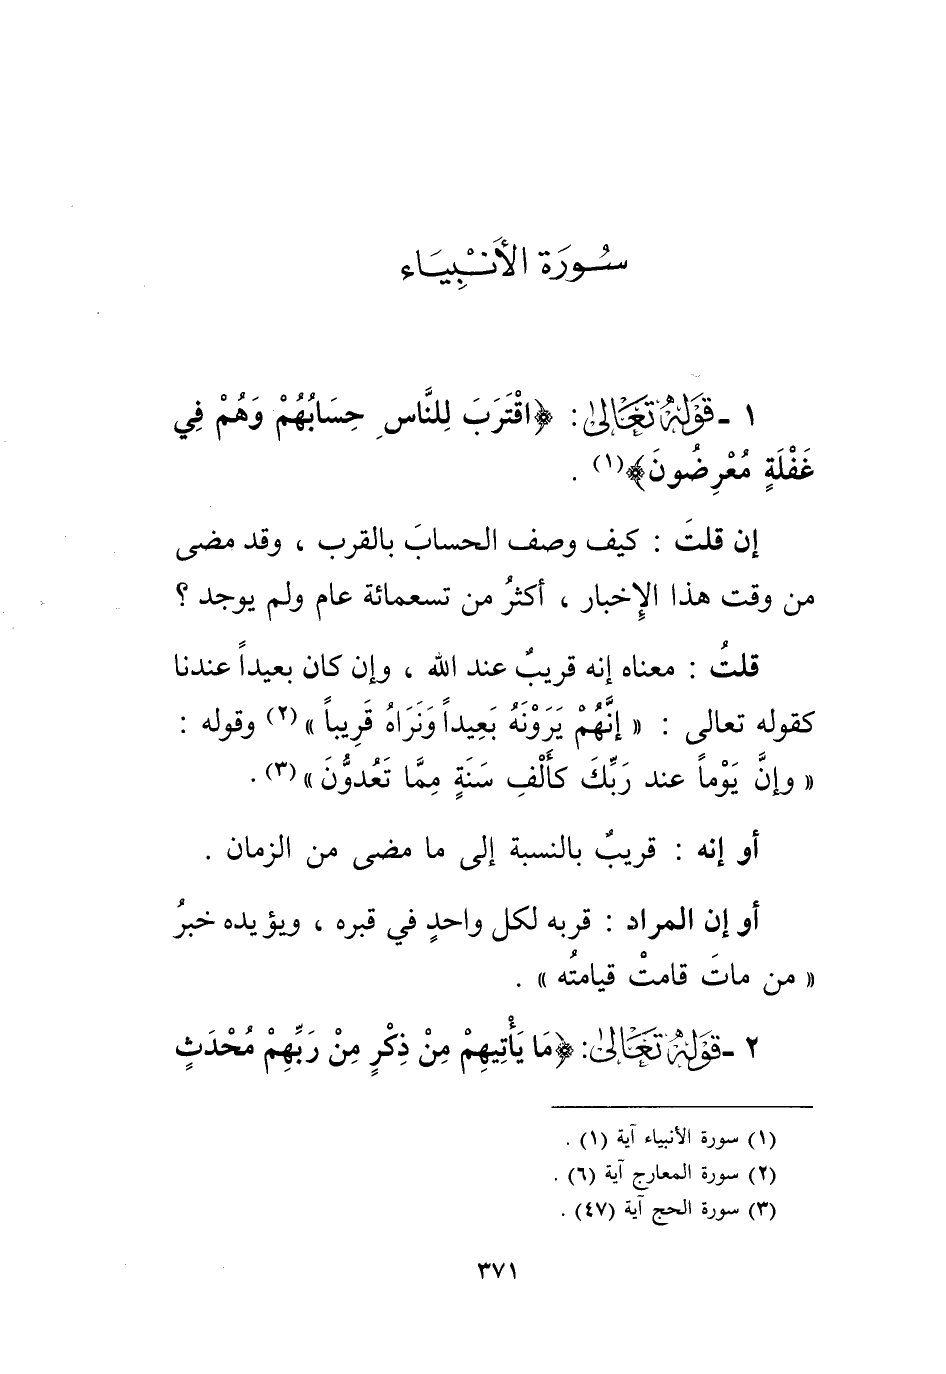 سُورَة الأَنْبِيَاء
١ ـ قَوْلُهُ تَعَالَىٰ : ﴿اقْتَرَبَ لِلنَّاسِ حِسَابُهُمْ وَهُمْ فِي
غَفْلَةٍ مُعْرِضُونَ﴾(١) .
إن قلتَ : كيف وصف الحسابَ بالقرب ، وقد مضى
من وقت هذا الإِخبار ، أكثرُ من تسعمائة عام ولم يوجد ؟
قلتُ : معناه إنه قريبٌ عند الله ، وإن كان بعيداً عندنا
كقوله تعالى : « إنَّهُمْ يَرَوْنَهُ بَعِيداً وَنَرَاهُ قَرِيباً »(٢) وقوله :
« وإنَّ يَوْماً عند رَبِّكَ كَأَلْفِ سَنَةٍ مِمَّا تَعُدُّونَ »(٣) .
أو إنه : قريبٌ بالنسبة إلى ما مضى من الزمان .
أو إن المراد : قربه لكل واحدٍ في قبره ، ويؤيده خبرُ
« من ماتَ قامتْ قيامتُه » .
٢ ـ قَوْلُهُ تَعَالَىٰ : ﴿مَا يَأْتِيهِمْ مِنْ ذِكْرٍ مِنْ رَبِّهِمْ مُحْدَثٍ
(١) سورة الأنبياء آية (١) .
(٢) سورة المعارج آية (٦) .
(٣) سورة الحج آية (٤٧) .
٣٧١